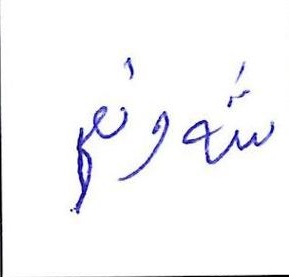 شەونم